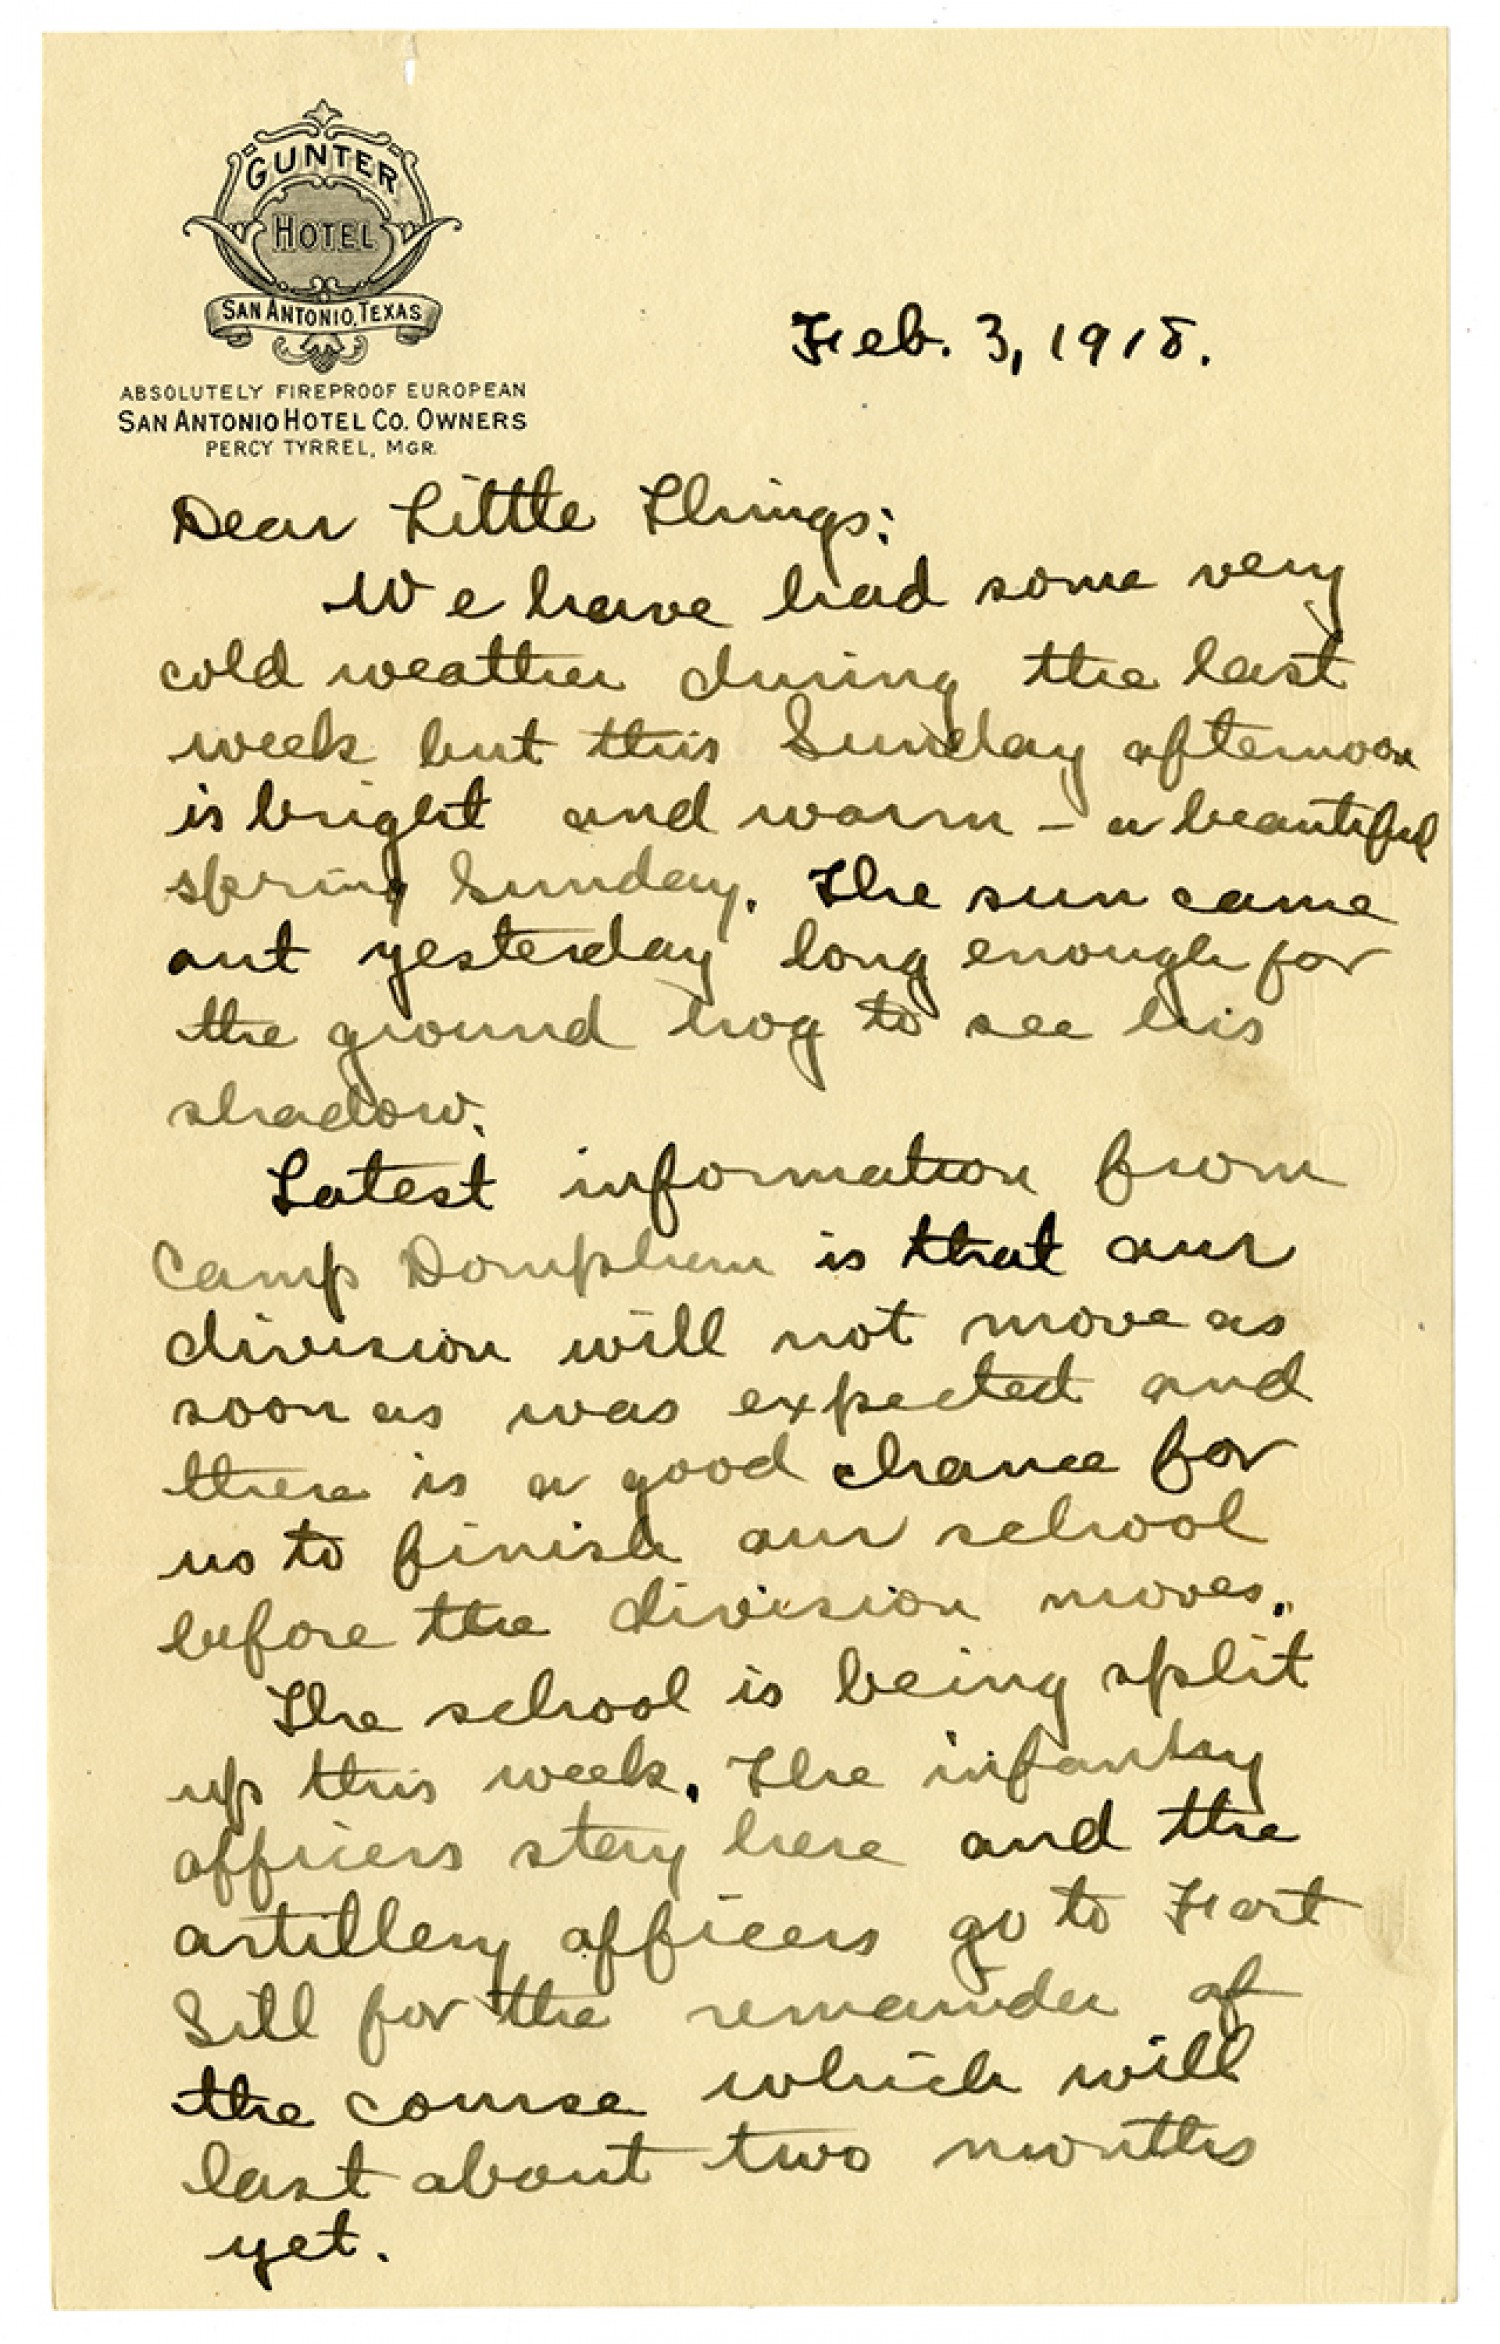 GUNTER
HOTEL
SAN ANTONIO, TEXAS
ABSOLUTELY FIREPROOF EUROPEAN
SAN ANTONIO HOTEL CO. OWNERS
PERCY TYRREL, MGR.
Feb. 3, 1918.
Dear Little Things:
We have had some very
cold weather during the last
week but this Sunday afternoon
is bright and warm - a beautiful
spring Sunday. The sun came
out yesterday long enough for
the ground hog to see his
shadow.
Latest information from
Camp Doniphan is that our
division will not move as
soon as was expected and
there is a good chance for
us to finish our school
before the division moves.
The school is being split
up this week. The infantry
officers stay here and the
artillery officers go to Fort
Sill for the remainder of
the course which will
last about two months
yet.